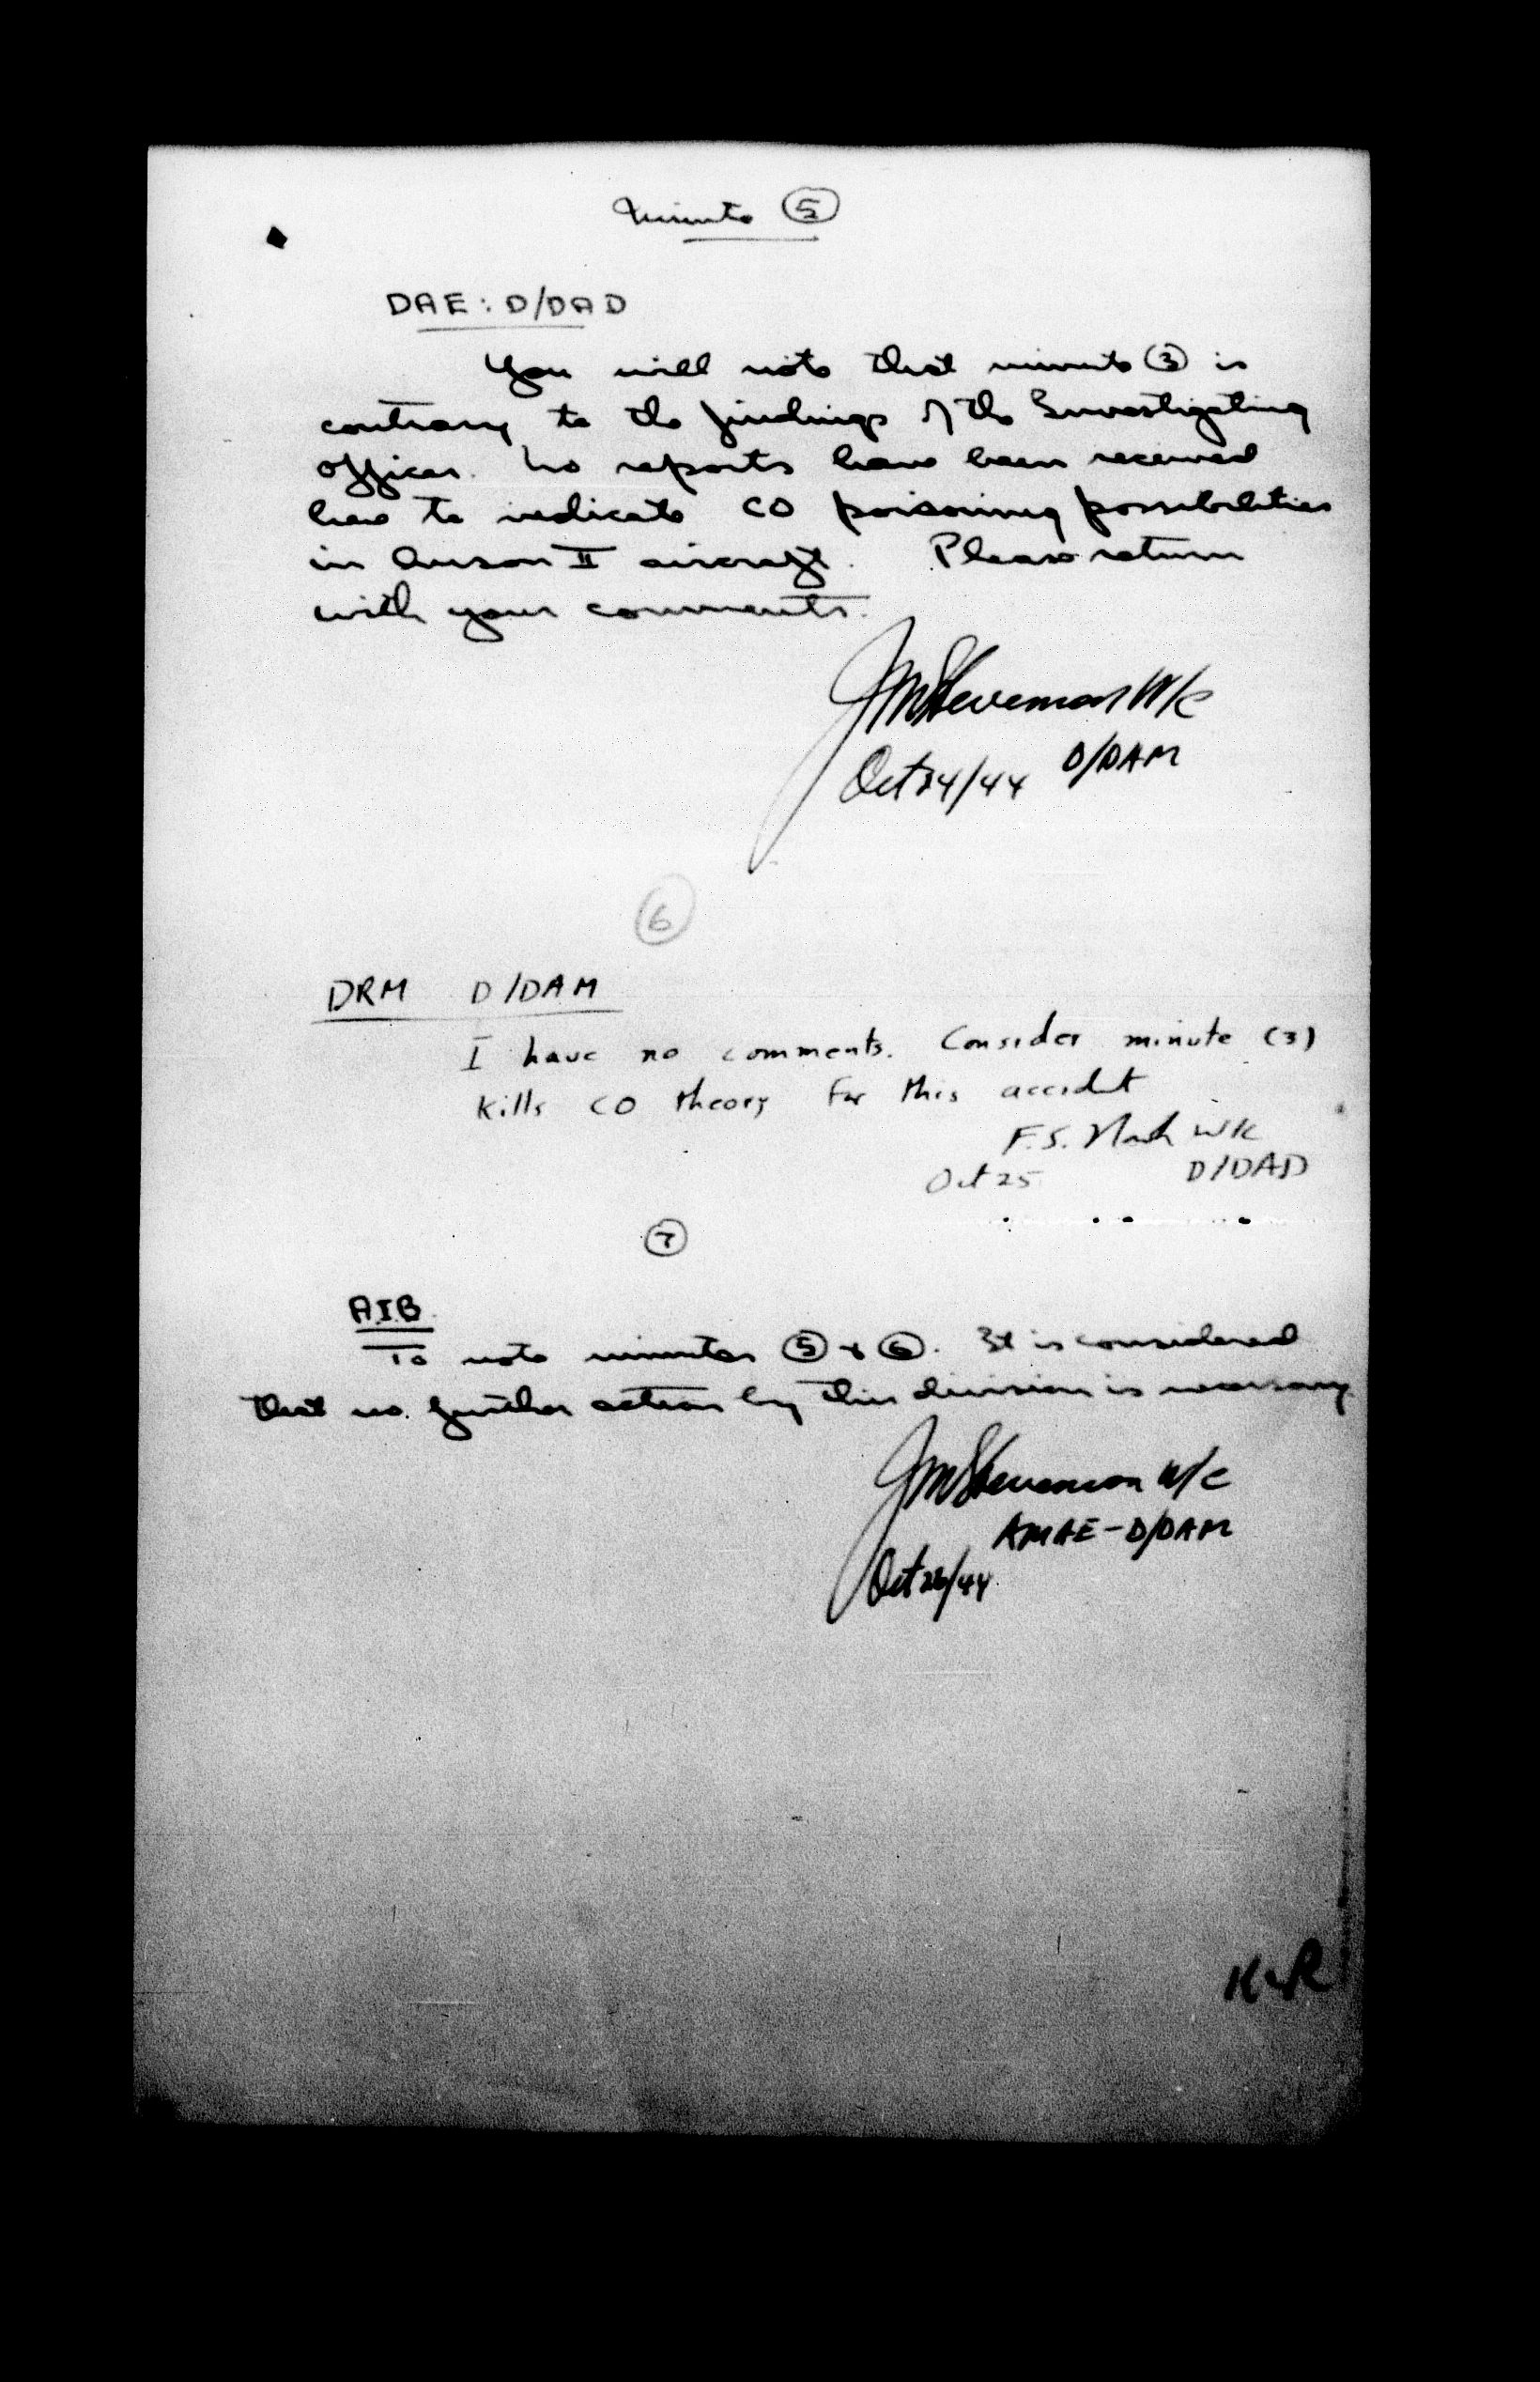 Minute ⑤
DAE: D/DAD
You will note that minute ③ is
contrary to the findings of the Investigating
Officer. No reports have been received
here to indicate CO poisoning possibilities
in Anson II aircraft. Please return
with your comments.
JMStevenson W/C
Oct 24/44 D/DAM
⑥
DRM D/DAM
I have no comments. Consider minute (3)
kills CO theory for this accident
F.S. Nash W/C
Oct 25 D/DAD
⑦
AIB
To note minutes ⑤ & ⑥. It is considered
that no further action by this division is necessary
JMStevenson W/C
AMAE-D/DAM
Oct 26/44